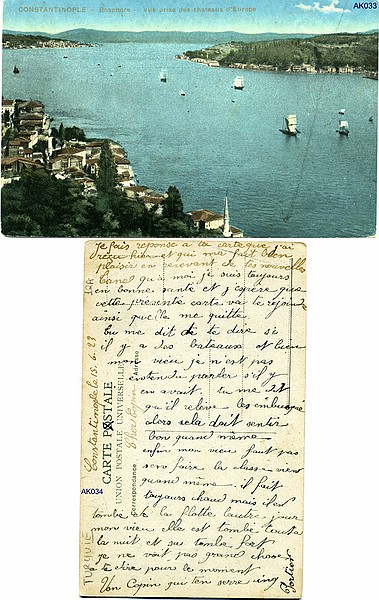 CONSTANTINOPLE – Bosphore – Vue prise des chateaux d'Europe
AK033
Je fais réponse a ta carte que j'ai
reçu hier et qui ma fait bien
plaisir en recevant de tes nouvelles
quà moi je suis toujours
en bonne santé et j'espère que
cette présente carte va te rejoindre
ainsi quelle me quitte
tu me dit de te dire si
il y a des bateaux et bien
mon vieu je n'est pas
entendu parler s'il y
en avait. tu me dit
qu'il relève les embusqué
alors cela doit sentir
bon quand même
enfin mon vieu faut pas
sen faire la classe vient
quand même. il fait
toujours chaud mais il en
tombé de la flotte lautre jour
mon vieu elle est tombé toute
la nuit et sa tombe fort
je ne voit pas grand chose
a te dire pour le moment
Un Copin qui ten serre cinq
Constantinople le 15.6.23
CARTE POSTALE
UNION POSTALE UNIVERSELLE
Correspondance
Adresse
Cher Copin
AK034
TURQUIE